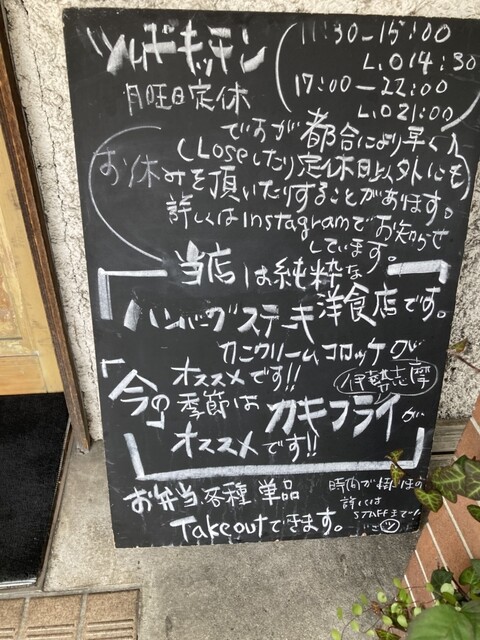 ツルギキッチン
11:30-15:00
L.O14:30
17:00-22:00
L.O21:00
月曜日定休
ですが都合により早く
CLOSEしたり定休日以外にも
お休みを頂いたりすることがあります。
詳しくはInstagramでお知らせ
しています。
当店は純粋な
洋食店です。
ハンバーグステーキ
カニクリームコロッケが
オススメです!!
「今の」季節は
伊勢志摩
カキフライが
オススメです!!
お弁当、各種単品
Takeoutできます。
時間が掛かるの
詳しくは
STAFFまで